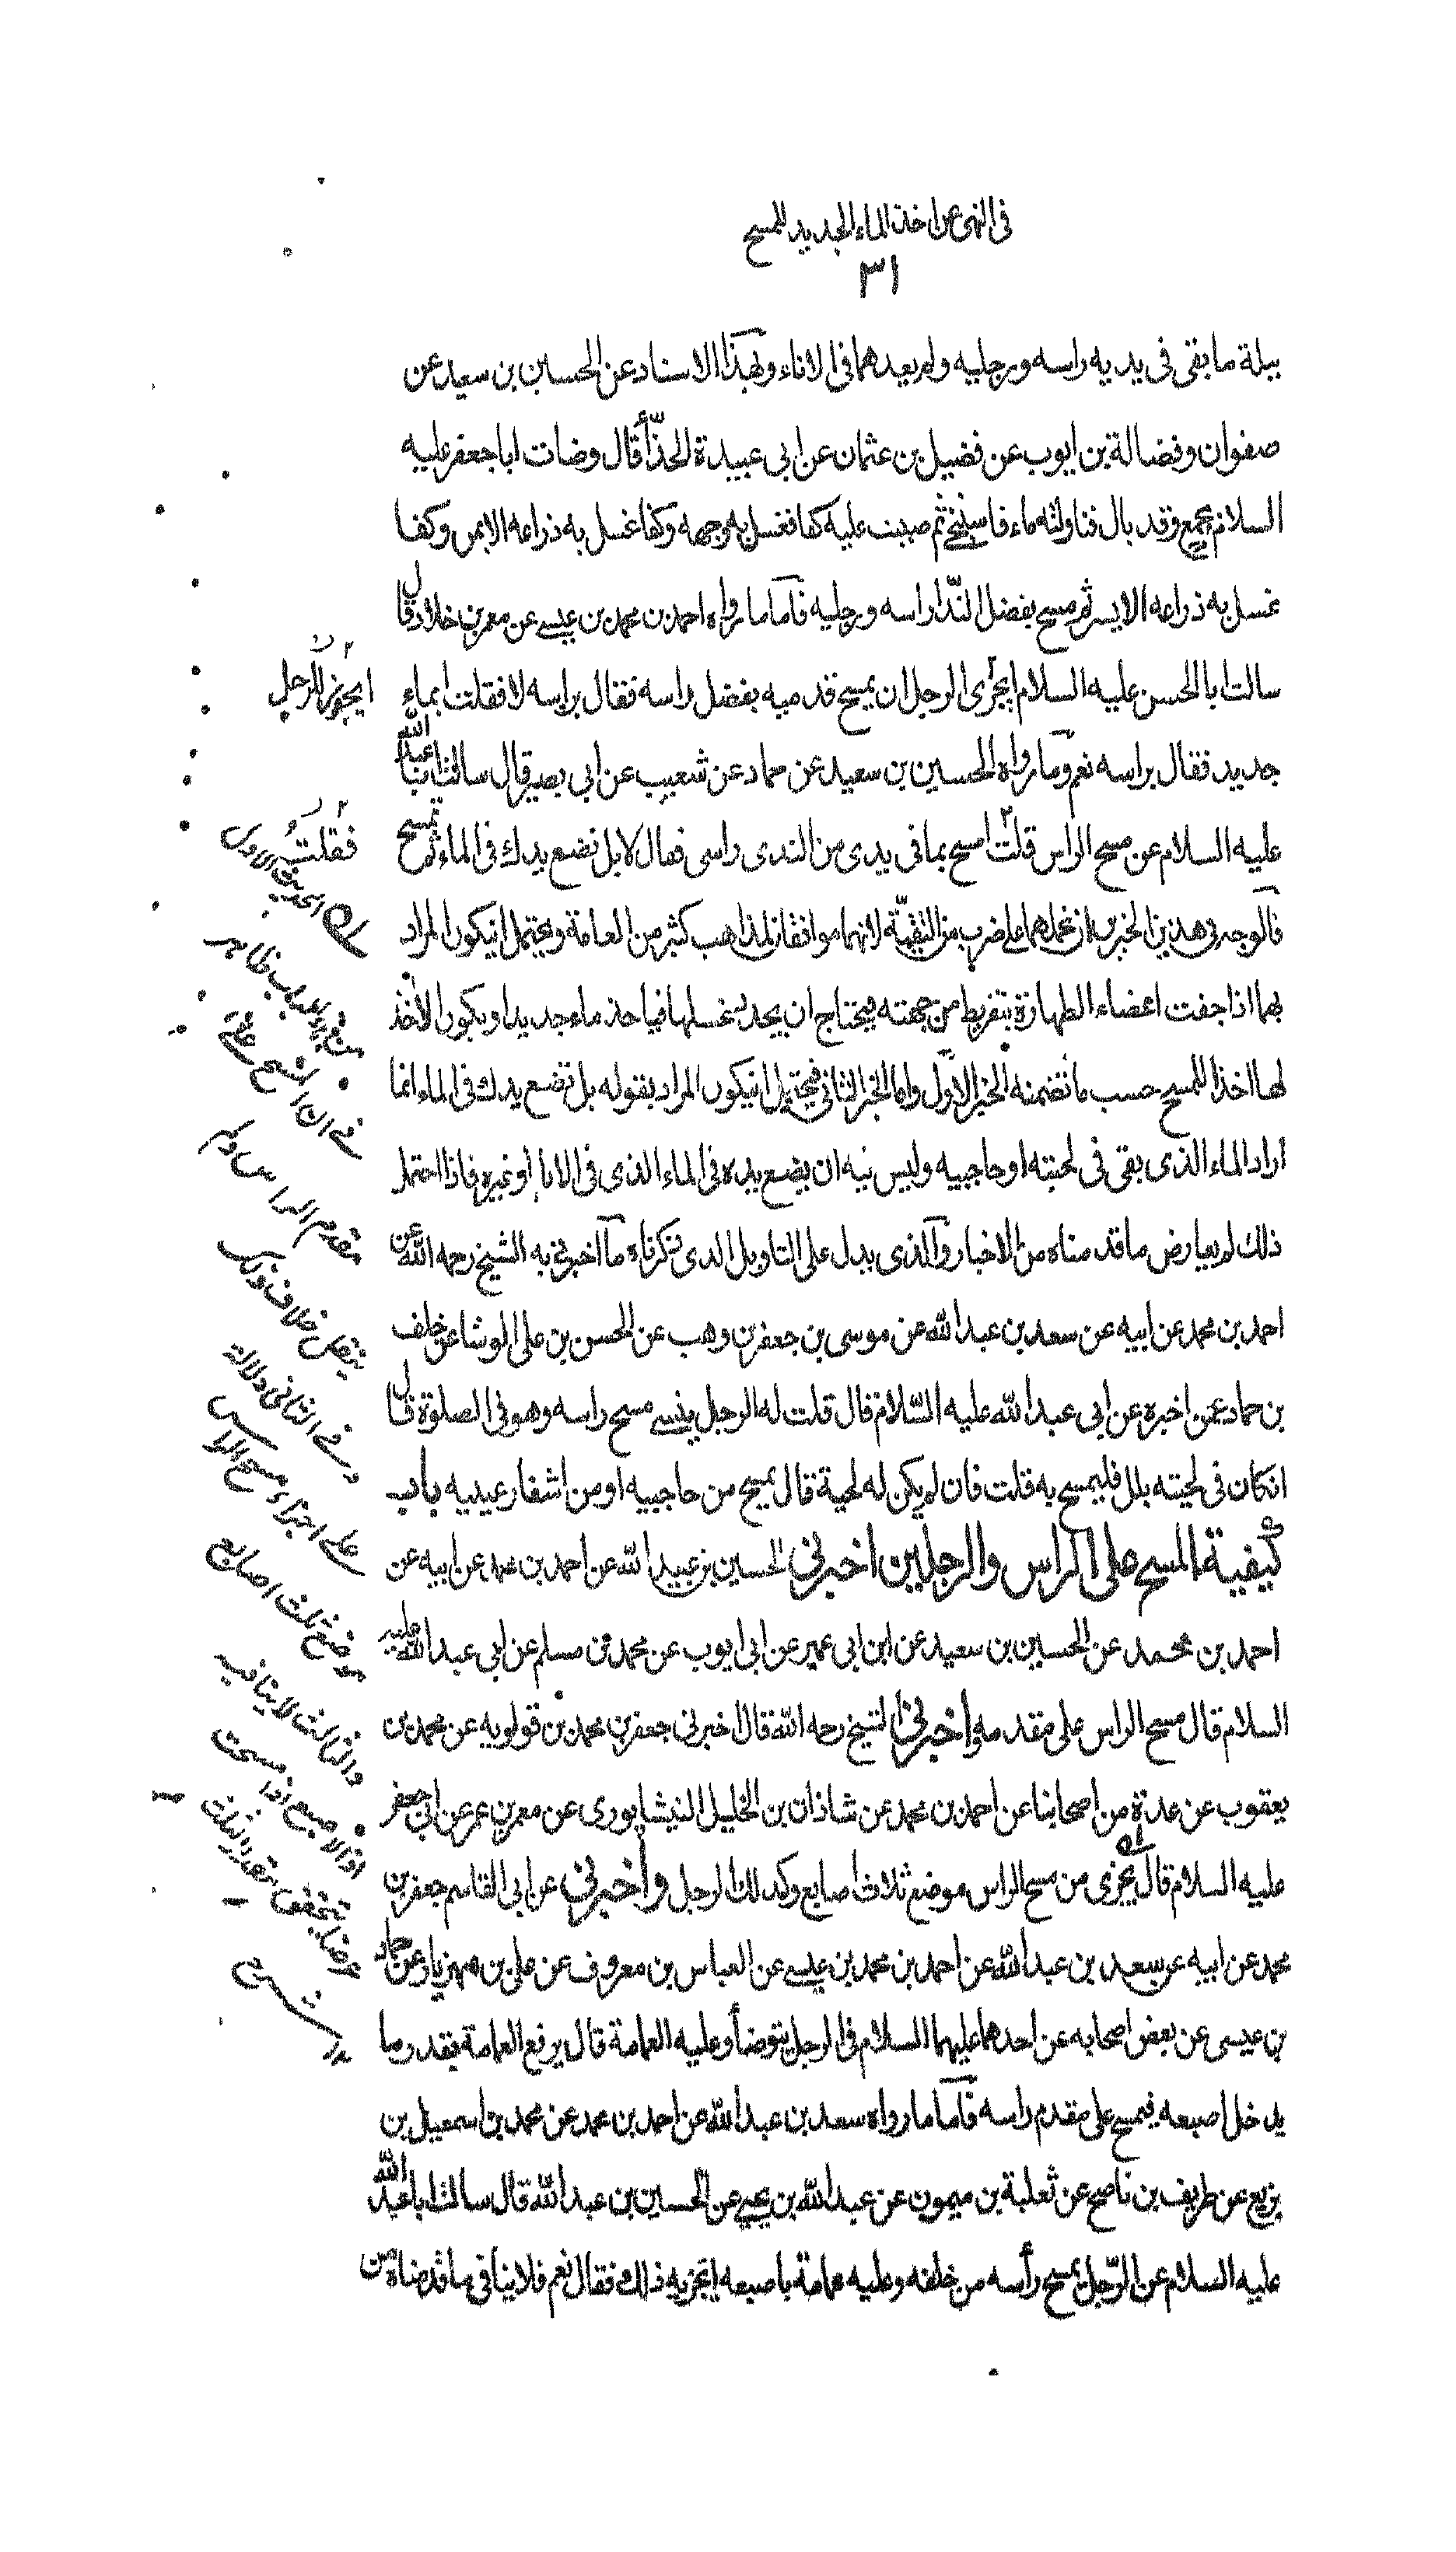 فى النهى عن اخذ الماء الجديد للمسح
٣١
ببلة ما بقى فى يديه راسه ورجليه ولم يعدهما فى الاناء وبهذا الاسناد عن الحسين بن سعيد عن
صفوان وفضالة بن ايوب عن فضيل بن عثمان عن ابى عبيدة الحذّأ قال وضات ابا جعفر عليه
السلام بجمع وقد بال فناولته ماء فاستنجى ثم صببت عليه كفا فغسل به وجهه وكفا غسل به ذراعه الايمن وكفا
غسل به ذراعه الايسر ثم مسح بفضل النّدا راسه ورجليه فامّا ما رواه احمد بن محمد بن عيسى عن معمر بن خلاد قال
سالت ابا الحسن عليه السلام ايجزى الرجل ان يمسح قدميه بفضل راسه فقال براسه لا فقلت ابماء
جديد فقال براسه نعم وما رواه الحسين بن سعيد عن حماد عن شعيب عن ابى بصير قال سالت ابا عبد الله
عليه السلام عن مسح الراس قلت امسح بما فى يدى من الندى راسى فقال لا بل تضع يدك فى الماء ثم تمسح
فالوجه فى هذين الخبرين ان نحملهما على ضرب من التقيّة لانهما موافقان لمذاهب كثير من العامة ويحتمل ان يكون المراد
بهما اذا جفت اعضاء الطهارة بتفريط من جهته فيحتاج ان يجدد غسلها فياخذ ماء جديدا ويكون الاخذ
لها اخذا للمسح حسب ما تضمنه الخبر الاوّل واما الخبر الثانى فيحتمل ان يكون المراد بقوله بل تضع يدك فى الماء انما
اراد الماء الذى بقى فى لحيته او حاجبيه وليس فيه ان يضع يده فى الماء الذى فى الاناء او غيره فاذا احتمل
ذلك لم يعارض ما قدمناه من الاخبار والذى يدل على التاويل الذى ذكرناه ما اخبرنى به الشيخ رحمه الله عن
احمد بن محمد عن ابيه عن سعد بن عبد الله عن موسى بن جعفر بن وهب عن الحسن بن على الوشا عن خلف
بن حماد عمن اخبره عن ابى عبد الله عليه السّلام قال قلت له الرجل ينسى مسح راسه وهو فى الصلوة قال
ان كان فى لحيته بلل فليمسح به قلت فان لم يكن له لحية قال يمسح من حاجبيه او من اشفار عينيه باب
كيفية المسح على الراس والرجلين اخبرنى الحسين بن عبيد الله عن احمد بن محمد عن ابيه عن
احمد بن محمد عن الحسين بن سعيد عن ابن ابى عمير عن ابى ايوب عن محمد بن مسلم عن ابى عبد الله عليه
السلام قال مسح الراس على مقدمه واخبرنى الشيخ رحمه الله قال اخبرنى جعفر بن محمد بن قولويه عن محمد بن
يعقوب عن عدة من اصحابنا عن احمد بن محمد عن شاذان بن الخليل النيشابورى عن معمر بن عمر عن ابى جعفر
عليه السلام قال يجزى من مسح الراس موضع ثلاث اصابع وكذلك الرجل واخبرنى عن ابى القاسم جعفر بن
محمد عن ابيه عن سعد بن عبد الله عن احمد بن محمد بن عيسى عن العباس بن معروف عن على بن مهزيار عن حماد
بن عيسى عن بعض اصحابه عن احدهما عليهما السلام فى الرجل يتوضأ وعليه العمامة قال يرفع العمامة بقدر ما
يدخل اصبعه فيمسح على مقدم راسه فامّا ما رواه سعد بن عبد الله عن احمد بن محمد عن محمد بن اسمعيل بن
بزيع عن ظريف بن ناصح عن ثعلبة بن ميمون عن عبد الله بن يحيى عن الحسين بن عبد الله قال سالت ابا عبد الله
عليه السلام عن الرّجل يمسح رأسه من خلفه وعليه عمامة باصبعه ايجزيه ذلك فقال نعم فلا ينافى ما قدمناه من
ايجوز للرجل
فقلت
الحديث الاول
من هذا الباب ظاهر
فى ان المسح على
مقدم الراس ولم
ينقل خلاف ذلك
وفى الثانى دلالة
على اجزاء مسح الراس
موضع ثلث اصابع
والثالث لا ينافيه